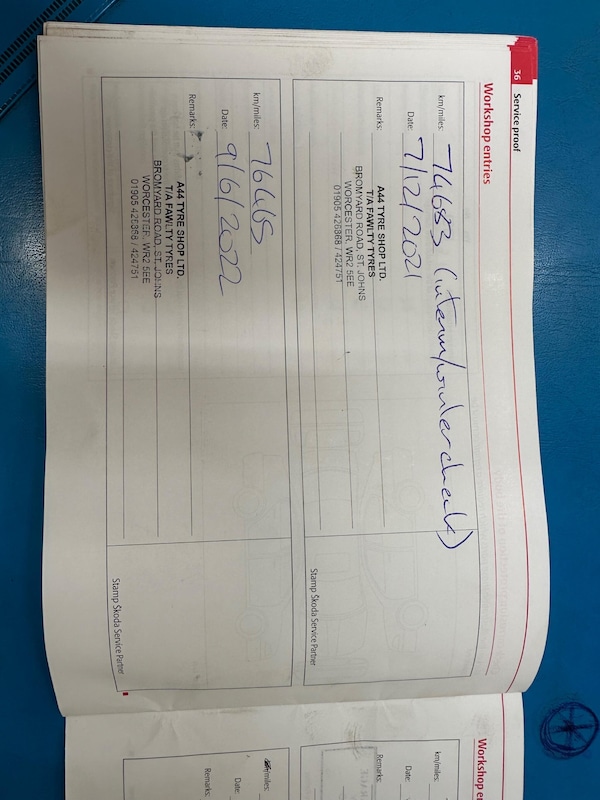 36 Service proof
Workshop entries
km/miles: 74683 (interim/winter check)
Date: 7/12/2021
Remarks:
A44 TYRE SHOP LTD.
T/A FAWLTY TYRES
BROMYARD ROAD, ST. JOHNS
WORCESTER. WR2 5EE
01905 426368 / 424751
Stamp Škoda Service Partner
km/miles: 76415
Date: 9/6/2022
Remarks:
A44 TYRE SHOP LTD
T/A FAWLTY TYRES
BROMYARD ROAD, ST. JOHNS
WORCESTER. WR2 5EE
01905 426368 / 424751
Stamp Škoda Service Partner
Workshop
km/miles:
Date:
Remarks:
km/miles:
Date:
Remarks: